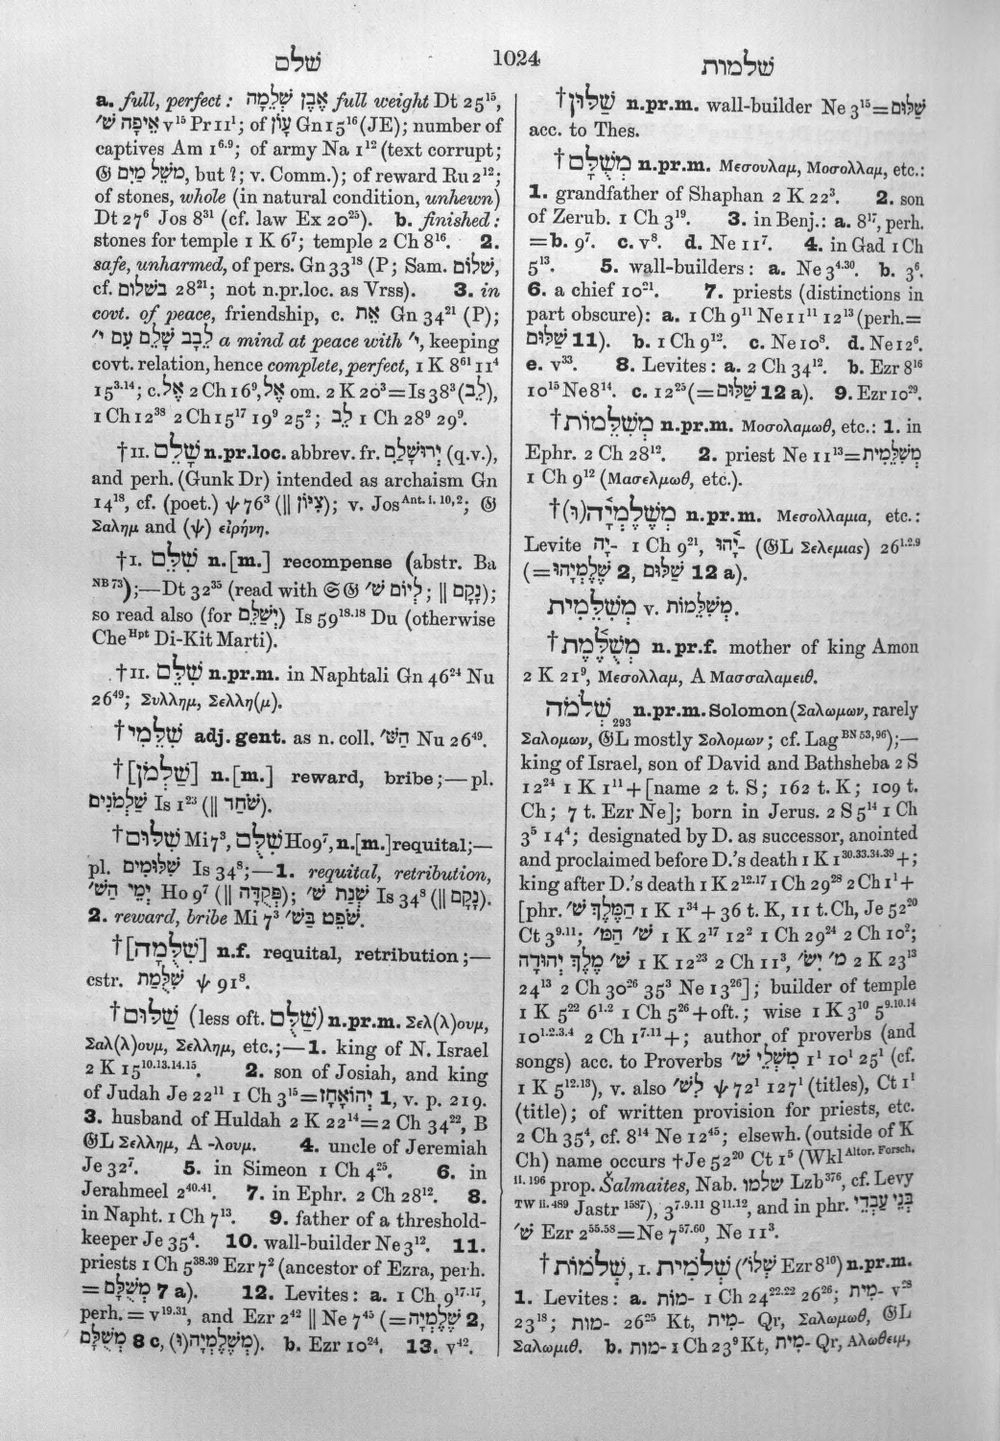 שלם
1024
שלמות
a. full, perfect: אֶבֶן שְׁלֵמָה full weight Dt 25¹⁵,
אֵיפָה שׁ׳ v¹⁵ Pr 11¹; of עָוֺן Gn 15¹⁶ (JE); number of
captives Am 1⁶·⁹; of army Na 1¹² (text corrupt;
𝔊 מֹשֵׁל מַיִם, but ?; v. Comm.); of reward Ru 2¹²;
of stones, whole (in natural condition, unhewn)
Dt 27⁶ Jos 8³¹ (cf. law Ex 20²⁵). b. finished:
stones for temple 1 K 6⁷; temple 2 Ch 8¹⁶. 2.
safe, unharmed, of pers. Gn 33¹⁸ (P; Sam. שׁלום,
cf. בשלום 28²¹; not n.pr.loc. as Vrss). 3. in
covt. of peace, friendship, c. אֵת Gn 34²¹ (P);
לֵבָב שָׁלֵם עִם י׳ a mind at peace with י׳, keeping
covt. relation, hence complete, perfect, 1 K 8⁶¹ 11⁴
15³·¹⁴; c. אֶל 2 Ch 16⁹, אֶל om. 2 K 20³=Is 38³ (לֵב),
1 Ch 12³⁸ 2 Ch 15¹⁷ 19⁹ 25²; לֵב 1 Ch 28⁹ 29⁹.
†II. שָׁלֵם n.pr.loc. abbrev. fr. יְרוּשָׁלַ͏ִם (q.v.),
and perh. (Gunk Dr) intended as archaism Gn
14¹⁸, cf. (poet.) ψ 76³ (|| צִיּוֹן); v. Jos Ant. i. 10, 2; 𝔊
Σαλημ and (ψ) εἰρήνη.
†I. שִׁלֵּם n.[m.] recompense (abstr. Ba
NB 73);—Dt 32³⁵ (read with 𝔖 𝔊 לְיוֹם שׁ׳; || נָקָם);
so read also (for יְשַׁלֵּם) Is 59¹⁸·¹⁸ Du (otherwise
Che Hpt Di-Kit Marti).
†II. שִׁלֵּם n.pr.m. in Naphtali Gn 46²⁴ Nu
26⁴⁹; Συλλημ, Σελλη(μ).
†שִׁלֵּמִי adj. gent. as n. coll. הַשּׁ׳ Nu 26⁴⁹.
†[שַׁלְמֹן] n.[m.] reward, bribe;—pl.
שַׁלְמֹנִים Is 1²³ (|| שֹׁחַד).
†שִׁלּוּם Mi 7³, שִׁלֻּם Ho 9⁷, n.[m.] requital;—
pl. שִׁלּוּמִים Is 34⁸;—1. requital, retribution,
יְמֵי הַשּׁ׳ Ho 9⁷ (|| פְּקֻדָּה); שְׁנַת שׁ׳ Is 34⁸ (|| נָקָם).
2. reward, bribe Mi 7³ שֹׁפֵט בַּשּׁ׳.
†[שִׁלֻּמָה] n.f. requital, retribution;—
cstr. שִׁלֻּמַת ψ 91⁸.
†שַׁלּוּם (less oft. שַׁלֻּם) n.pr.m. Σελ(λ)ουμ,
Σαλ(λ)ουμ, Σελλημ, etc.;—1. king of N. Israel
2 K 15¹⁰·¹³·¹⁴·¹⁵. 2. son of Josiah, and king
of Judah Je 22¹¹ 1 Ch 3¹⁵=יְהוֹאָחָז 1, v. p. 219.
3. husband of Huldah 2 K 22¹⁴=2 Ch 34²², B
𝔊L Σελλημ, A -λουμ. 4. uncle of Jeremiah
Je 32⁷. 5. in Simeon 1 Ch 4²⁵. 6. in
Jerahmeel 2⁴⁰·⁴¹. 7. in Ephr. 2 Ch 28¹². 8.
in Napht. 1 Ch 7¹³. 9. father of a threshold-
keeper Je 35⁴. 10. wall-builder Ne 3¹². 11.
priests 1 Ch 5³⁸·³⁹ Ezr 7² (ancestor of Ezra, perh.
= מְשֻׁלָּם 7 a). 12. Levites: a. 1 Ch 9¹⁷·¹⁷,
perh. = v¹⁹·³¹, and Ezr 2⁴² || Ne 7⁴⁵ (=שֶׁלֶמְיָה 2,
מְשֻׁלָּם 8 c, מְשֶׁלֶמְיָה(וּ)). b. Ezr 10²⁴. 13. v⁴².
†שַׁלּוּן n.pr.m. wall-builder Ne 3¹⁵=שַׁלּוּם
acc. to Thes.
†מְשֻׁלָּם n.pr.m. Μεσουλαμ, Μοσολλαμ, etc.:
1. grandfather of Shaphan 2 K 22³. 2. son
of Zerub. 1 Ch 3¹⁹. 3. in Benj.: a. 8¹⁷, perh.
=b. 9⁷. c. v⁸. d. Ne 11⁷. 4. in Gad 1 Ch
5¹³. 5. wall-builders: a. Ne 3⁴·³⁰. b. 3⁶.
6. a chief 10²¹. 7. priests (distinctions in
part obscure): a. 1 Ch 9¹¹ Ne 11¹¹ 12¹³ (perh.=
שַׁלּוּם 11). b. 1 Ch 9¹². c. Ne 10⁸. d. Ne 12⁶.
e. v³³. 8. Levites: a. 2 Ch 34¹². b. Ezr 8¹⁶
10¹⁵ Ne 8¹⁴. c. 12²⁵ (=שַׁלּוּם 12 a). 9. Ezr 10²⁹.
†מְשִׁלֵּמוֹת n.pr.m. Μοσολαμωθ, etc.: 1. in
Ephr. 2 Ch 28¹². 2. priest Ne 11¹³=מְשִׁלֵּמִית
1 Ch 9¹² (Μασελμωθ, etc.).
†מְשֶׁלֶמְיָה(וּ) n.pr.m. Μεσολλαμια, etc.:
Levite ־יָה 1 Ch 9²¹, ־יָהוּ (𝔊L Σελεμιας) 26¹·²·⁹
(=שֶׁלֶמְיָהוּ 2, שַׁלּוּם 12 a).
מְשִׁלֵּמִית v. מְשִׁלֵּמוֹת.
†מְשֻׁלֶּמֶת n.pr.f. mother of king Amon
2 K 21⁹, Μεσολλαμ, A Μασσαλαμειθ.
שְׁלֹמֹה 293 n.pr.m. Solomon (Σαλωμων, rarely
Σαλομων, 𝔊L mostly Σολομων; cf. Lag BN 53, 96);—
king of Israel, son of David and Bathsheba 2 S
12²⁴ 1 K 1¹¹+[name 2 t. S; 162 t. K; 109 t.
Ch; 7 t. Ezr Ne]; born in Jerus. 2 S 5¹⁴ 1 Ch
3⁵ 14⁴; designated by D. as successor, anointed
and proclaimed before D.'s death 1 K 1³⁰·³³·³⁴·³⁹+;
king after D.'s death 1 K 2¹²·¹⁷ 1 Ch 29²⁸ 2 Ch 1¹+
[phr. הַמֶּלֶךְ שׁ׳ 1 K 1³⁴+36 t. K, 11 t. Ch, Je 52²⁰
Ct 3⁹·¹¹; שׁ׳ הַמּ׳ 1 K 2¹⁷ 12² 1 Ch 29²⁴ 2 Ch 10²;
שׁ׳ מֶלֶךְ יְהוּדָה 1 K 12²³ 2 Ch 11³, מ׳ יִשׂ׳ 2 K 23¹³
24¹³ 2 Ch 30²⁶ 35³ Ne 13²⁶]; builder of temple
1 K 5²² 6¹·² 1 Ch 5²⁶+oft.; wise 1 K 3¹⁰ 5⁹·¹⁰·¹⁴
10¹·²·³·⁴ 2 Ch 1⁷·¹¹+; author of proverbs (and
songs) acc. to Proverbs מִשְׁלֵי שׁ׳ 1¹ 10¹ 25¹ (cf.
1 K 5¹²·¹³), v. also לִשׁ׳ ψ 72¹ 127¹ (titles), Ct 1¹
(title); of written provision for priests, etc.
2 Ch 35⁴, cf. 8¹⁴ Ne 12⁴⁵; elsewh. (outside of K
Ch) name occurs †Je 52²⁰ Ct 1⁵ (Wkl Altor. Forsch.
ii. 196 prop. Šalmaites, Nab. שלמו Lzb³⁷⁶, cf. Levy
TW ii. 489 Jastr¹⁵⁸⁷), 3⁷·⁹·¹¹ 8¹¹·¹², and in phr. בְּנֵי עַבְדֵי
שׁ׳ Ezr 2⁵⁵·⁵⁸=Ne 7⁵⁷·⁶⁰, Ne 11³.
†שְׁלֹמוֹת, I. שְׁלֹמִית (שְׁלוֹ׳ Ezr 8¹⁰) n.pr.m.
1. Levites: a. ־מוֹת 1 Ch 24²²·²² 26²⁶; ־מִית v²⁸
23¹⁸; ־מות 26²⁵ Kt, ־מִית Qr, Σαλωμωθ, 𝔊L
Σαλωμιθ. b. ־מות 1 Ch 23⁹ Kt, ־מִית Qr, Αλωθειμ,